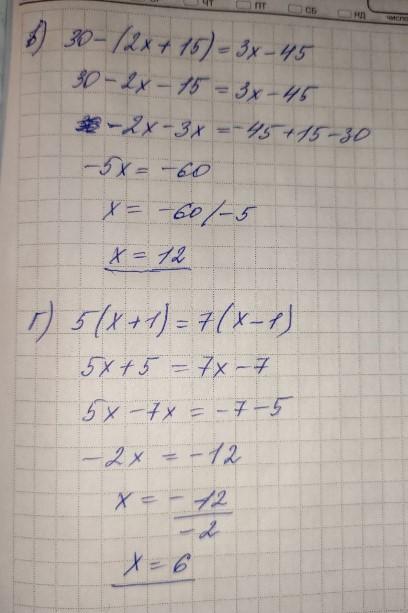 ЧТ ПТ СБ НД
число
в) 30-(2x+15)=3x-45
30-2x-15=3x-45
-2x-3x=-45+15-30
-5x=-60
x=-60/-5
x=12
г) 5(x+1)=7(x-1)
5x+5=7x-7
5x-7x=-7-5
-2x=-12
x=-12
-2
x=6